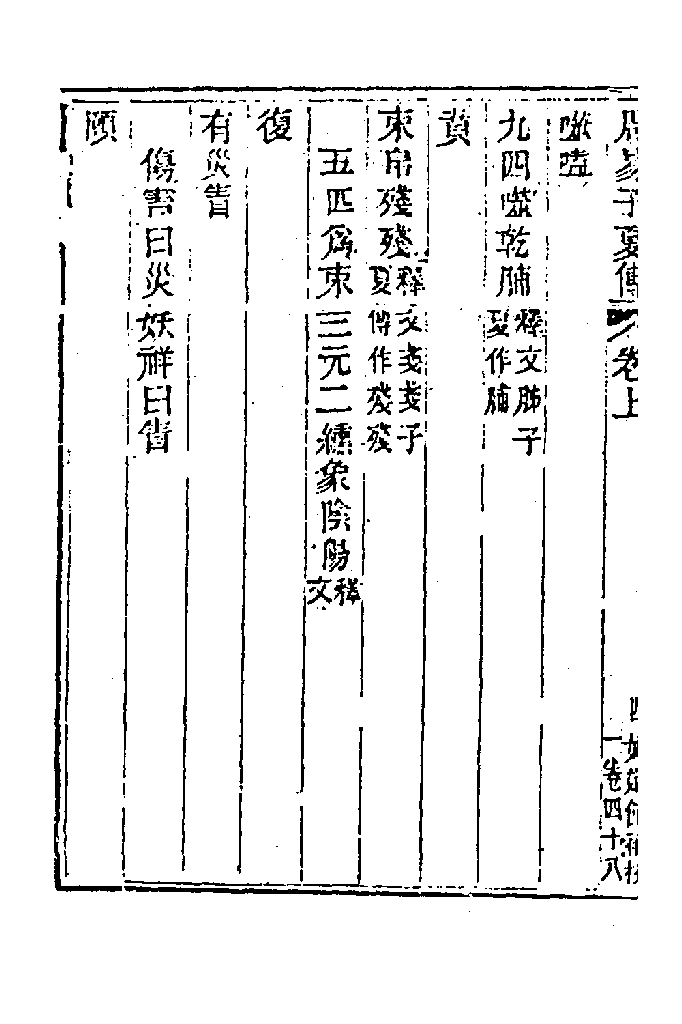 周易子夏傳 卷上
噬嗑
九四噬乾脯釋文胏子夏作脯
賁
束帛殘殘釋文戔戔子夏傳作殘殘
五匹爲束三元二纁象陰陽釋文
復
有災眚
傷害曰災妖祥曰眚
頤
四
一卷四十八